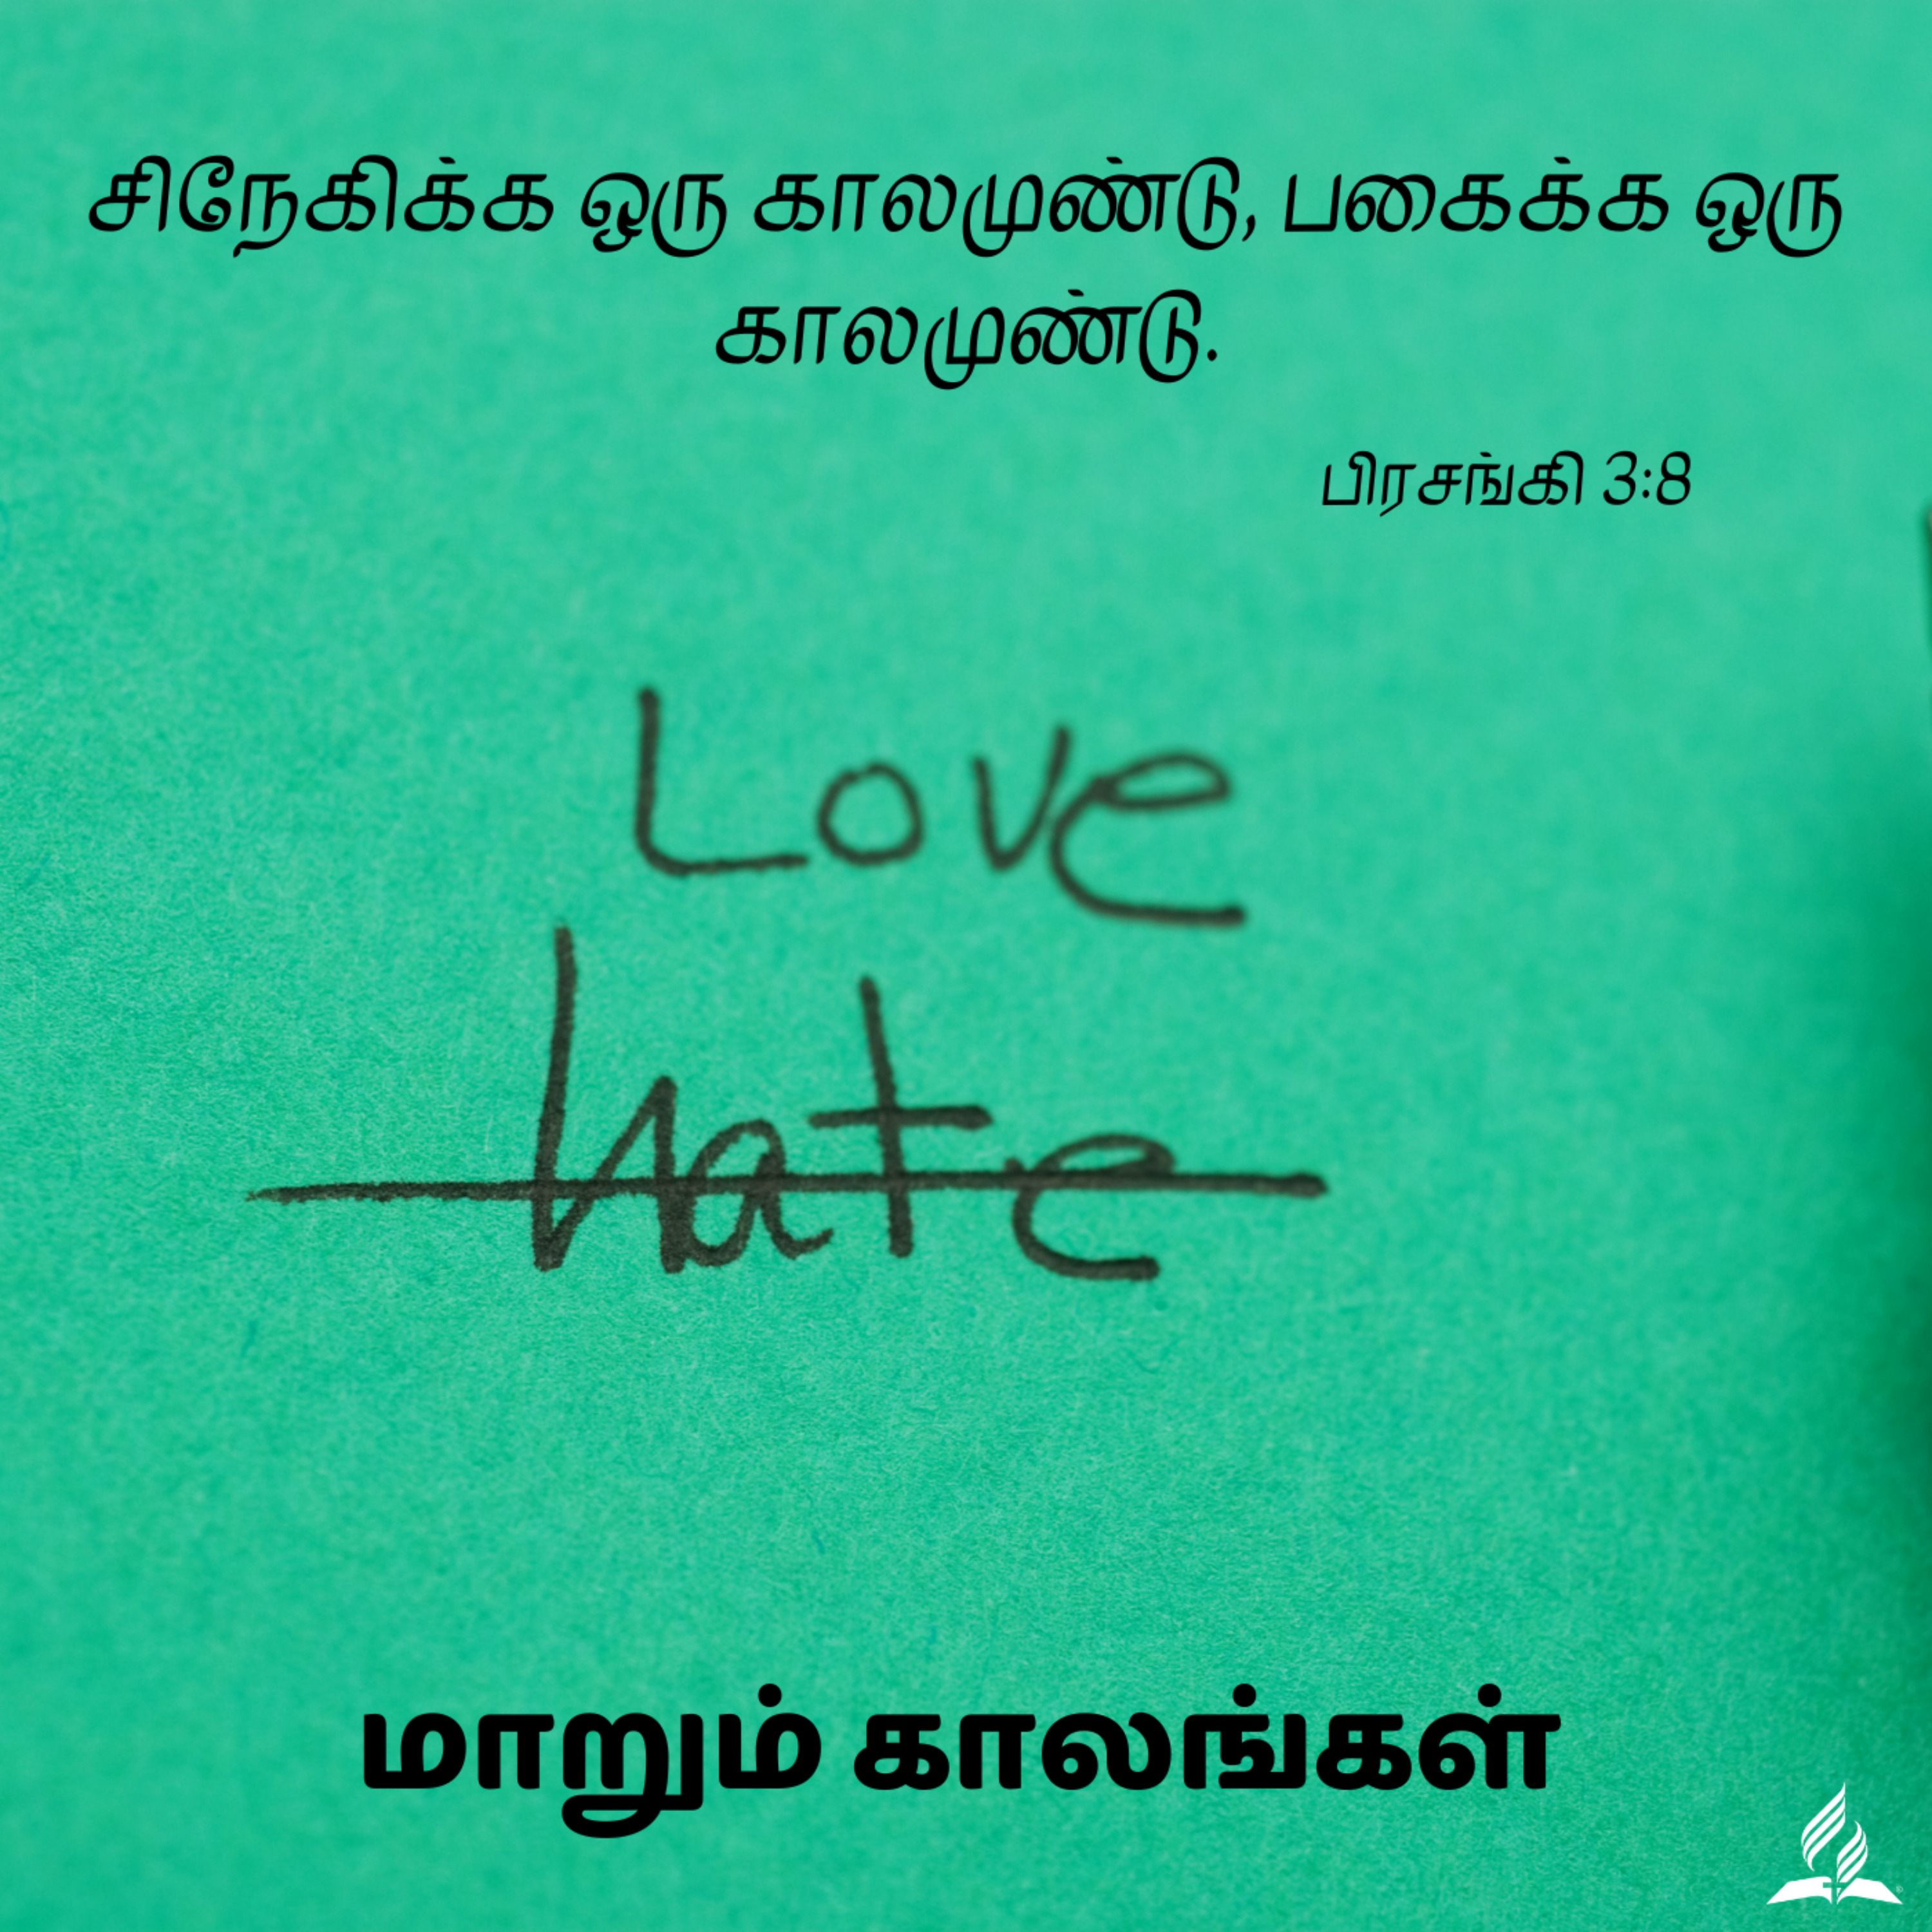 சிநேகிக்க ஒரு காலமுண்டு, பகைக்க ஒரு
காலமுண்டு.
பிரசங்கி 3:8
Love
hate
மாறும் காலங்கள்